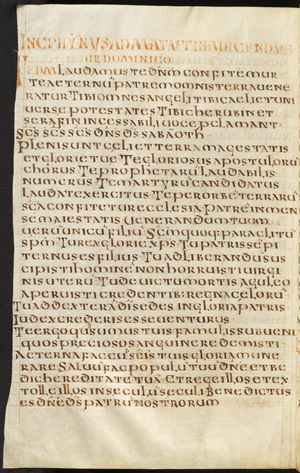 INC PHYNUS AD MATUTINA DICENDUS
DIE DOMINICO
TE DM LAUDAMUS TE DNM CONFITEMUR
TE AETERNU PATREM OMNIS TERRA UENE
RATUR TIBI OMNES ANGELI TIBI CAELI ET UNI
UERSE POTESTATES TIBI CHERUBIN ET
SERAFIN INCESSABILI UOCE PCLAMANT
SCS SCS SCS DNS DS SABAOTH
PLENI SUNT CELI ET TERRA MAGESTATIS
ET GLORIE TUE TE GLORIOSUS APOSTOLORU
CHORUS TE PROPHETARU LAUDABILIS
NUMERUS TE MARTYRU CANDIDATUS
LAUDAT EXERCITUS TE PER ORBE TERRARU
SCA CONFITETUR ECCLESIA PATRE INMEN
SE MAIESTATIS UENERANDUM TUUM
UERU UNICU FILIU SCM QUOQ: PARACLITU
SPM TU REX GLORIE XPS TU PATRIS SEPI
TERNUS ES FILIUS TU AD LIBERANDU SUS
CIPISTI HOMINE NON HORRUISTI UIRGI
NIS UTERU TU DEUICTO MORTIS ACULEO
APERUISTI CREDENTIB: REGNA CELORU
TU AD DEXTERA DI SEDES IN GLORIA PATRIS
IUDEX CREDERIS ESSE UENTURUS
TE ERGO QUESUMUS TUIS FAMULIS SUBUENI
QUOS PRECIOSO SANGUINE REDEMISTI
AETERNA FAC CU SCIS TUIS GLORIA MUNE
RARE SALUU FAC POPULU TUU DNE ET BE
DIC HEREDITATE TUA ET REGE ILLOS ET EX
TOLLE ILLOS IN SECULU SECULI BENEDICTUS
ES DNE DS PATRU NOSTRORUM